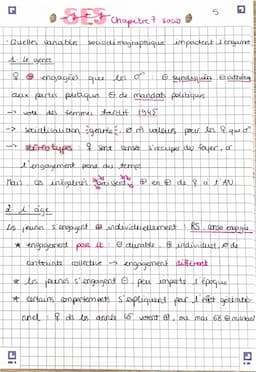 5
SES chapitre 7 socio
· Quelles variables sociodémographique impactent l'engagmt
1. Le genre
♀ ⊖ engagées que les ♂ ⊖ syndiquées ⊖
aux partis politiques ⊖ de mandats politiques
→ vote des femmes 1945
→ socialisation genrée : ≠ m̂ valeurs pour les ♀ que ♂
→ stéréotypes ♀ sont censé s'occuper du foyer, or
l'engagement prend du temps
Mais ces inégalités baissent ⊕ en ⊕ de ♀ à l'AN
2. L'âge
Les jeunes s'engagent ⊕ individuellement : RS
★ engagement post it : ⊖ durable, ⊕ individuel, ≠ de
contrainte collective → engagement différent
★ les jeunes s'engagent ⊖ peu importe l'époque
★ certains comportements s'expliquent par l'effet génératio-
nnel : ♀ de les années 45 votent ⊕, ou mai 68 ⊕ militant